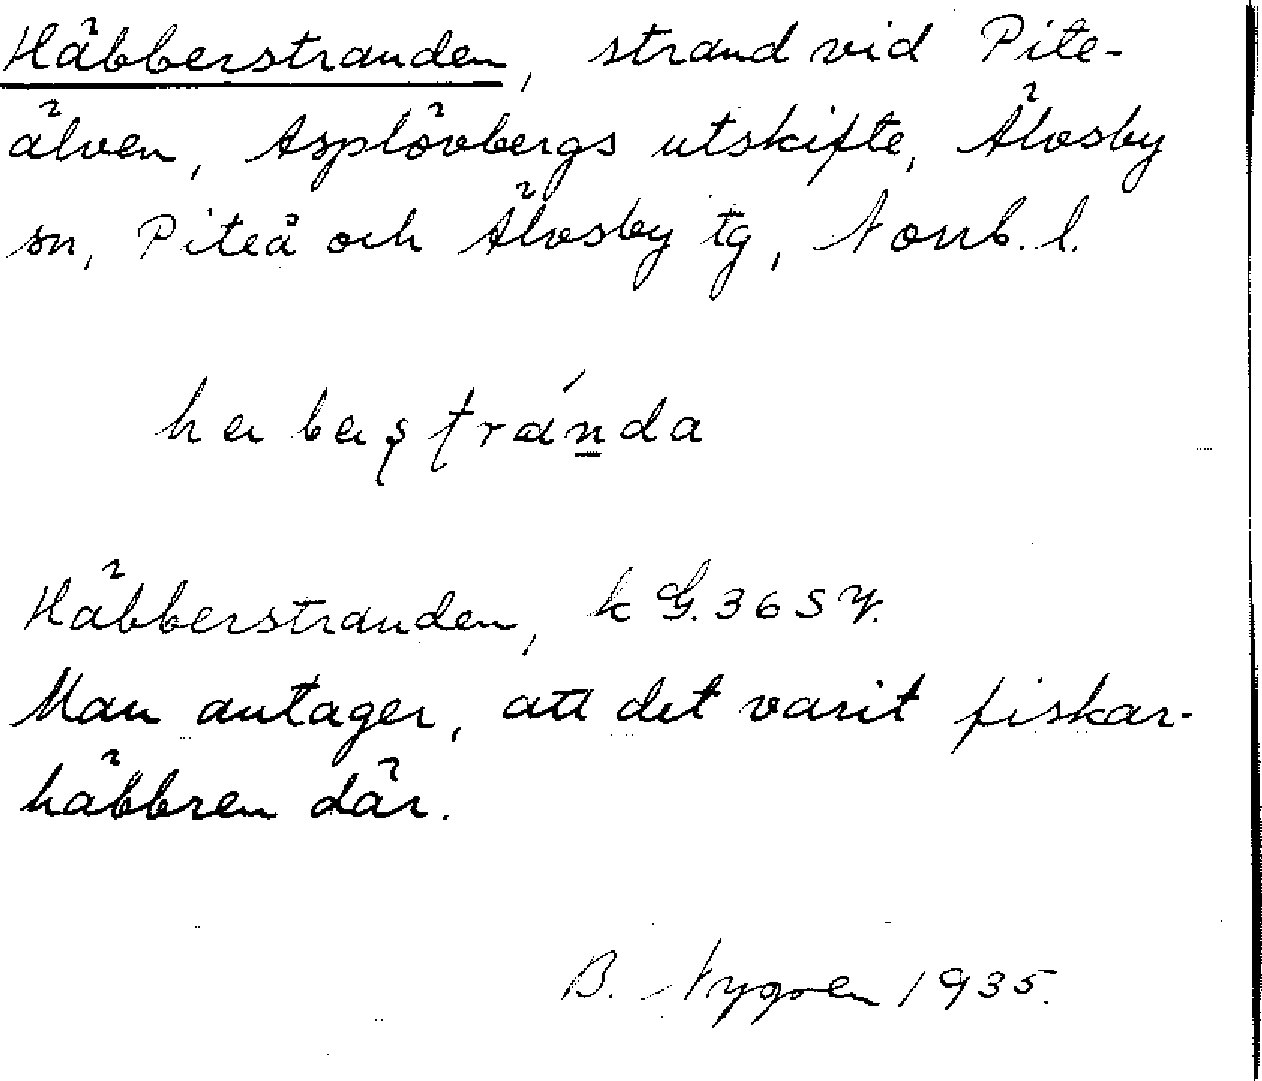 Häbberstranden, strand vid Pite-
älven, Asplövbergs utskifte, Älvsby
sn, Piteå och Älvsby tg, Norrb. l.
Häbberstranden, k G. 365 y.
Man antager, att det varit fiskar-
häbbren där.
B. Nygren 1935.